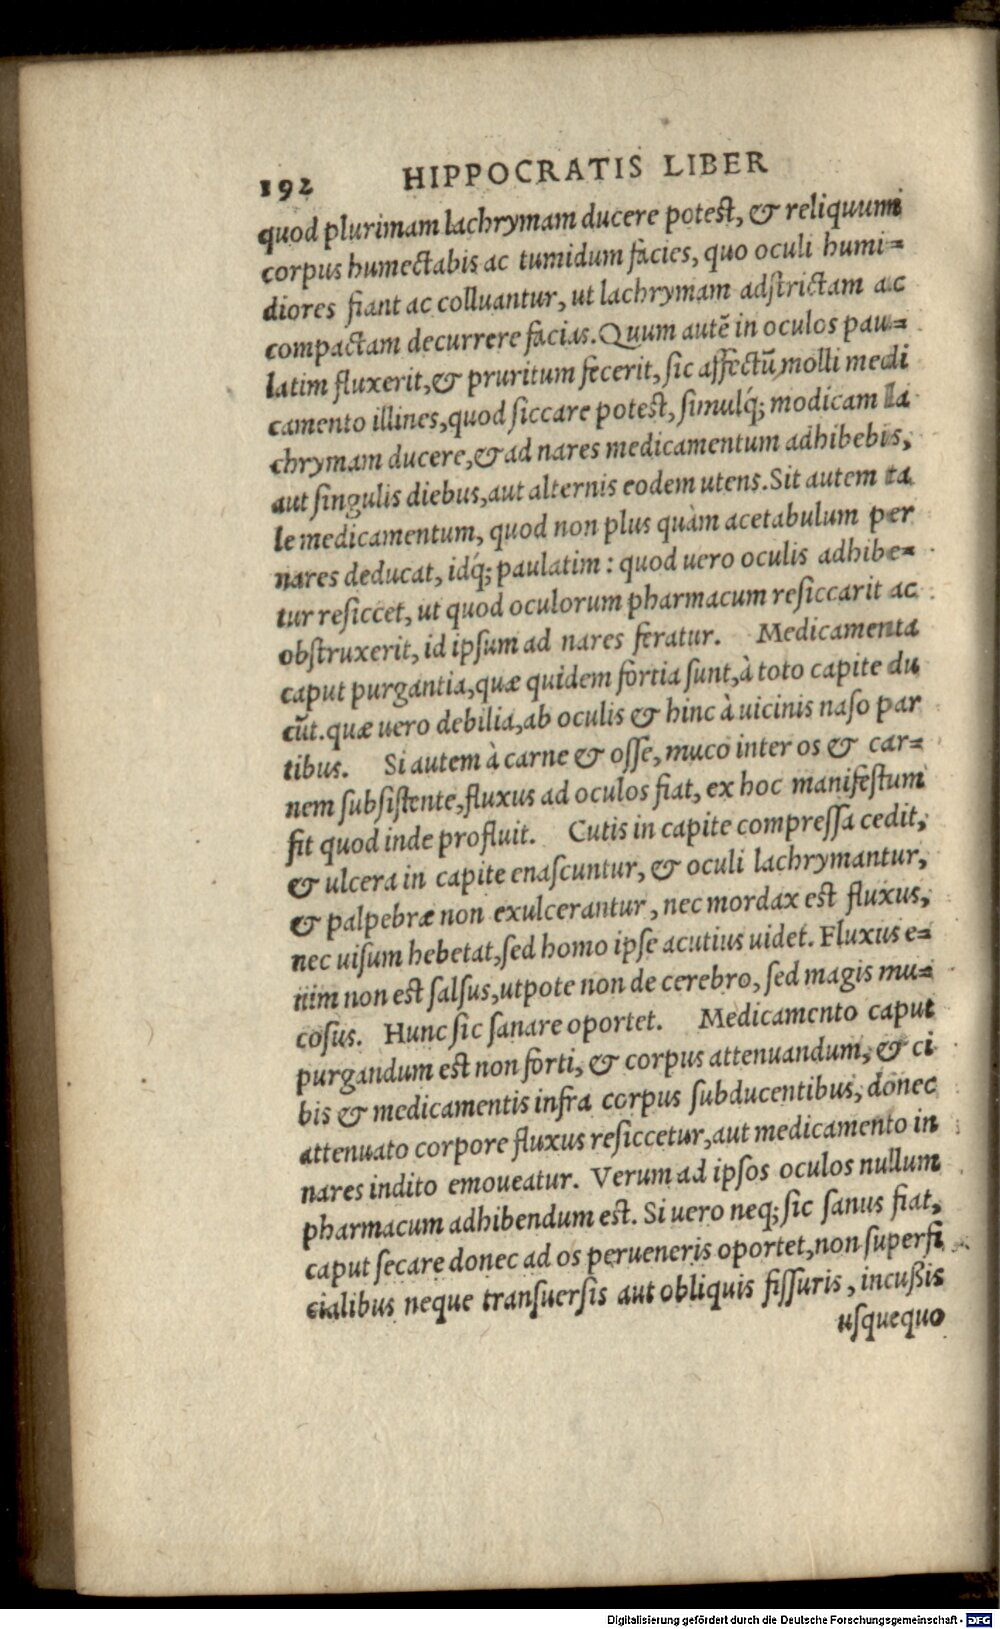 192 HIPPOCRATIS LIBER
quod plurimam lachrymam ducere potest, & reliquum
corpus humectabis ac tumidum facies, quo oculi humi=
diores fiant ac colluantur, ut lachrymam adſtrictam ac
compactam decurrere facias. Quum autē in oculos pau=
latim fluxerit, & pruritum fecerit, ſic affectū molli medi
camento illines, quod ſiccare poteſt, ſimulq́; modicam la
chrymam ducere, & ad nares medicamentum adhibebis,
aut ſingulis diebus, aut alternis eodem utens. Sit autem ta
le medicamentum, quod non plus quàm acetabulum per
nares deducat, idq́; paulatim: quod uero oculis adhibe=
tur reſiccet, ut quod oculorum pharmacum reſiccarit ac
obſtruxerit, id ipſum ad nares feratur. Medicamenta
caput purgantia, quæ quidem fortia ſunt, à toto capite du
cūt. quæ uero debilia, ab oculis & hinc à uicinis naſo par
tibus. Si autem à carne & oſſe, muco inter os & car=
nem ſubſiſtente, fluxus ad oculos fiat, ex hoc manifeſtum
fit quod inde profluit. Cutis in capite compreſſa cedit,
& ulcera in capite enaſcuntur, & oculi lachrymantur,
& palpebræ non exulcerantur, nec mordax eſt fluxus,
nec uiſum hebetat, ſed homo ipſe acutius uidet. Fluxus e=
nim non eſt ſalſus, utpote non de cerebro, ſed magis mu=
coſus. Hunc ſic ſanare oportet. Medicamento caput
purgandum eſt non forti, & corpus attenuandum, & ci
bis & medicamentis infra corpus ſubducentibus, donec
attenuato corpore fluxus reſiccetur, aut medicamento in
nares indito emoueatur. Verum ad ipſos oculos nullum
pharmacum adhibendum eſt. Si uero neq; ſic ſanus fiat,
caput ſecare donec ad os perueneris oportet, non ſuperfi
cialibus neque tranſuerſis aut obliquis fiſſuris, incußis
uſquequo
Digitalisierung gefördert durch die Deutsche Forschungsgemeinschaft - DFG